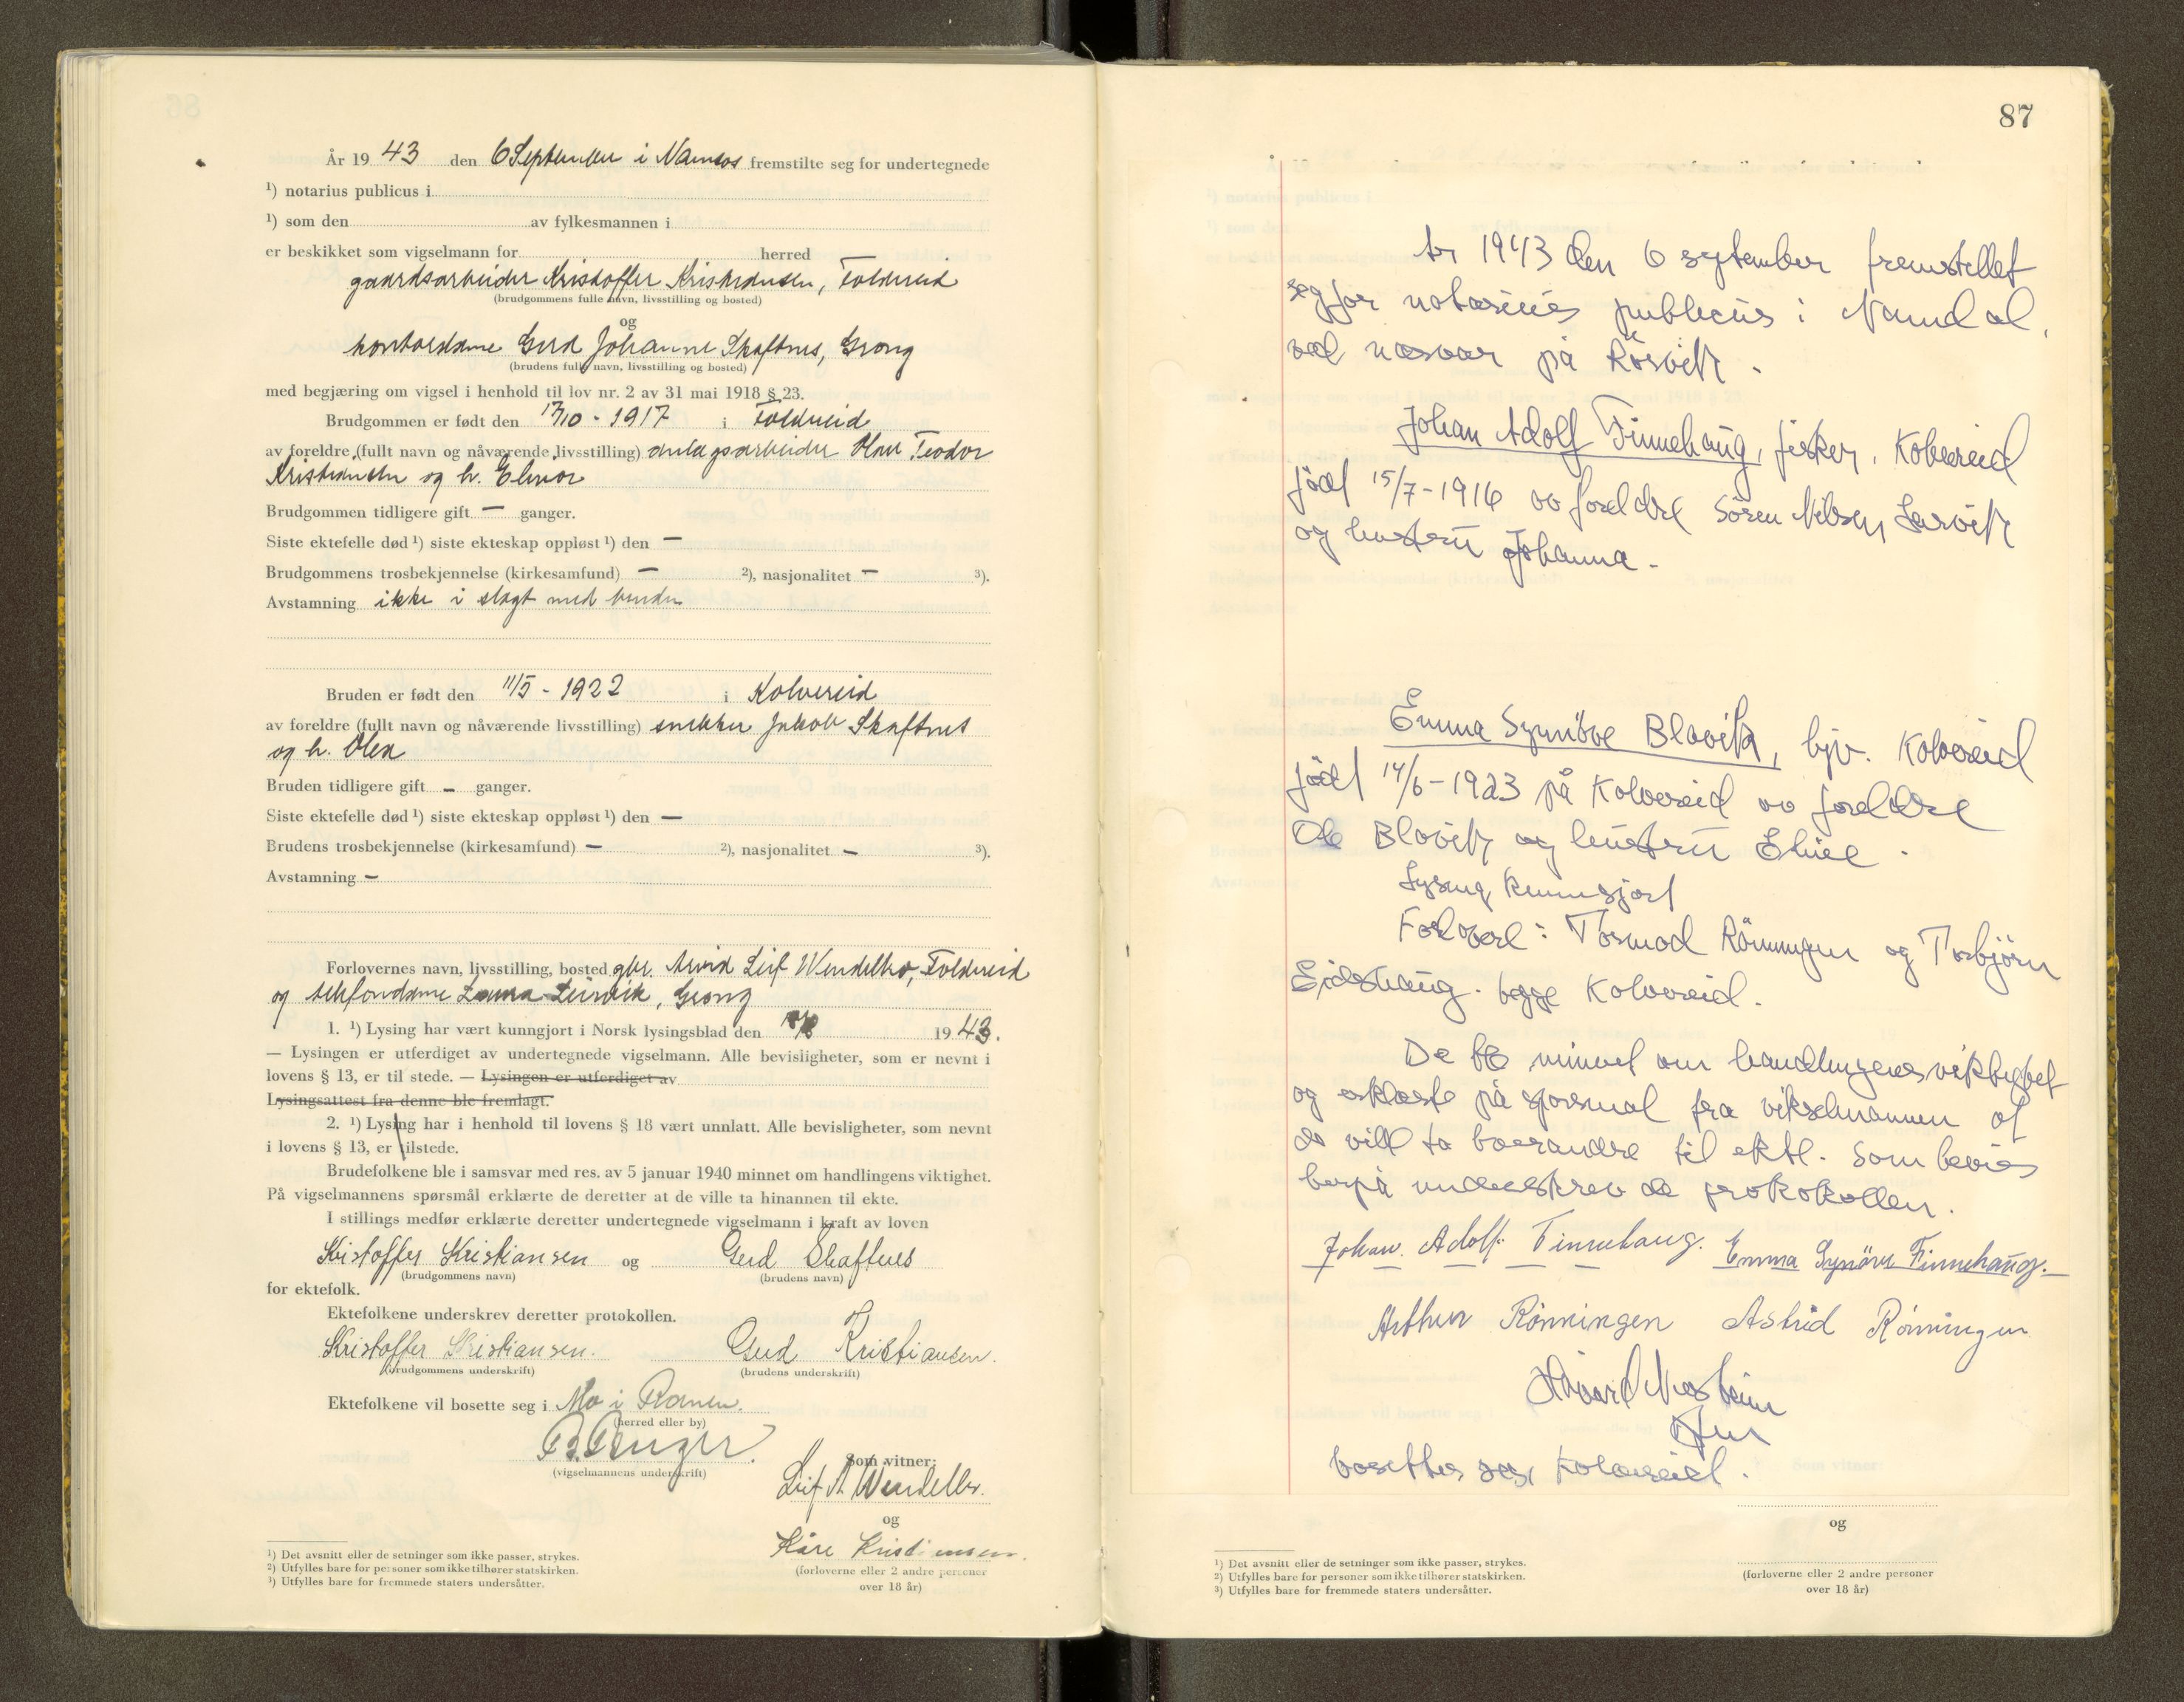 År 19 43 den 6 September i Namsos fremstilte seg for undertegnede
¹) notarius publicus i
¹) som den av fylkesmannen i
er beskikket som vigselmann for herred
gaardsarbeider Kristoffer Kristiansen, Foldereid
(brudgommens fulle navn, livsstilling og bosted)
og
kontordame Gerd Johanne Skaftnes, Grong
(brudens fulle navn, livsstilling og bosted)
med begjæring om vigsel i henhold til lov nr. 2 av 31 mai 1918 § 23.
Brudgommen er født den 17/10 - 1917 i Foldereid
av foreldre (fullt navn og nåværende livsstilling) anlegsarbeider Teodor
Kristiansen og h. Elinor
Brudgommen tidligere gift — ganger.
Siste ektefelle død ¹) siste ekteskap oppløst ¹) den —
Brudgommens trosbekjennelse (kirkesamfund) — ²), nasjonalitet — ³).
Avstamning ikke i slegt med bruden
Bruden er født den 11/5 - 1922 i Kolvereid
av foreldre (fullt navn og nåværende livsstilling) snekker Jakob Skaftnes
og h. Olea
Bruden tidligere gift — ganger.
Siste ektefelle død ¹) siste ekteskap oppløst ¹) den —
Brudens trosbekjennelse (kirkesamfund) — ²), nasjonalitet — ³).
Avstamning —
Forlovernes navn, livsstilling, bosted gbr. Arvid Leif Wendelbo, Foldereid
og telefondame Laura Leirvik, Grong
1. ¹) Lysing har vært kunngjort i Norsk lysingsblad den 19 43.
— Lysingen er utferdiget av undertegnede vigselmann. Alle bevisligheter, som er nevnt i
lovens § 13, er til stede. — Lysingen er utferdiget av
Lysingsattest fra denne ble fremlagt.
2. ¹) Lysing har i henhold til lovens § 18 vært unnlatt. Alle bevisligheter, som nevnt
i lovens § 13, er tilstede.
Brudefolkene ble i samsvar med res. av 5 januar 1940 minnet om handlingens viktighet.
På vigselmannens spørsmål erklærte de deretter at de ville ta hinannen til ekte.
I stillings medfør erklærte deretter undertegnede vigselmann i kraft av loven
Kristoffer Kristiansen og Gerd Skaftnes
(brudgommens navn) (brudens navn)
for ektefolk.
Ektefolkene underskrev deretter protokollen.
Kristoffer Kristiansen. Gerd Kristiansen.
(brudgommens underskrift) (brudens underskrift)
Ektefolkene vil bosette seg i Mo i Ranen.
(herred eller by)
(vigselmannens underskrift)
Som vitner:
Leif A Wendelbo.
og
Kåre Kristiansen.
(forloverne eller 2 andre personer
over 18 år)
¹) Det avsnitt eller de setninger som ikke passer, strykes.
²) Utfylles bare for personer som ikke tilhører statskirken.
³) Utfylles bare for fremmede staters undersåtter.
87
År 1943 den 6 september fremstillet
seg for notarius publicus i Namdal,
ved nærvær på Rørvik.
Johan Adolf Finnehaug, fisker, Kolvereid
født 15/7-1916 av foreldre Sören Nilsen Lervik
og hustru Johanna.
Emma Synnöve Blovik, hjv. Kolvereid
født 14/6-1923 på Kolvereid av foreldre
Ole Blovik og hustru
Lysing kunngjort
Forlovere: Tormod Rönningen og Torbjörn
Eidshaug. begge Kolvereid.
De ble minnet om handlingens viktighet
og erklærte på spörsmål fra vikselmannen at
de vill ta hverandre til ekte. Som bevis
herpå underskrev de protokollen.
Johan. Adolf. Finnehaug. Emma Synöve Finnehaug.
Arthur Rönningen Astrid Rönningen
bosetter seg Kolvereid.
og
(forloverne eller 2 andre personer
over 18 år)
¹) Det avsnitt eller de setninger som ikke passer, strykes.
²) Utfylles bare for personer som ikke tilhører statskirken.
³) Utfylles bare for fremmede staters undersåtter.